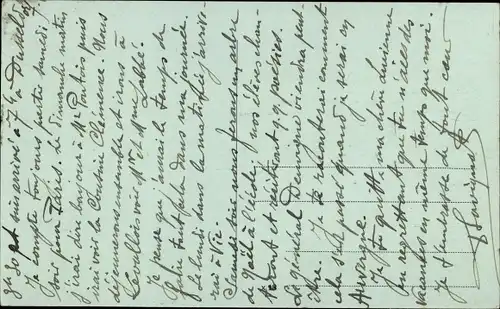 je suis arrivé à 7h à
Je compte toujours partir lundi
soir pour Paris. Le Dimanche matin
j'irai dire bonjour à Mr puis
j'irai voir la Cousine Clémence. Nous
déjeunerons ensemble et irons à
voir Mr et Mme Labbé.
Je pense que j'aurai le temps de
faire tout cela dans ma journée.
Le lundi dans la matinée j'arrive-
rai à Vic.
Samedi soir nous ferons un arbre
de Noël à l'école, nos élèves chan-
teront et réciteront qq. poésies.
Le général viendra peut-
être. Je te raconterai comment
cela s'est passé quand je serai en
Auvergne.
Je te quitte ma chère Lucienne
en regrettant que tu n'aies des
vacances en même temps que moi.
Je t'embrasse de tout cœur